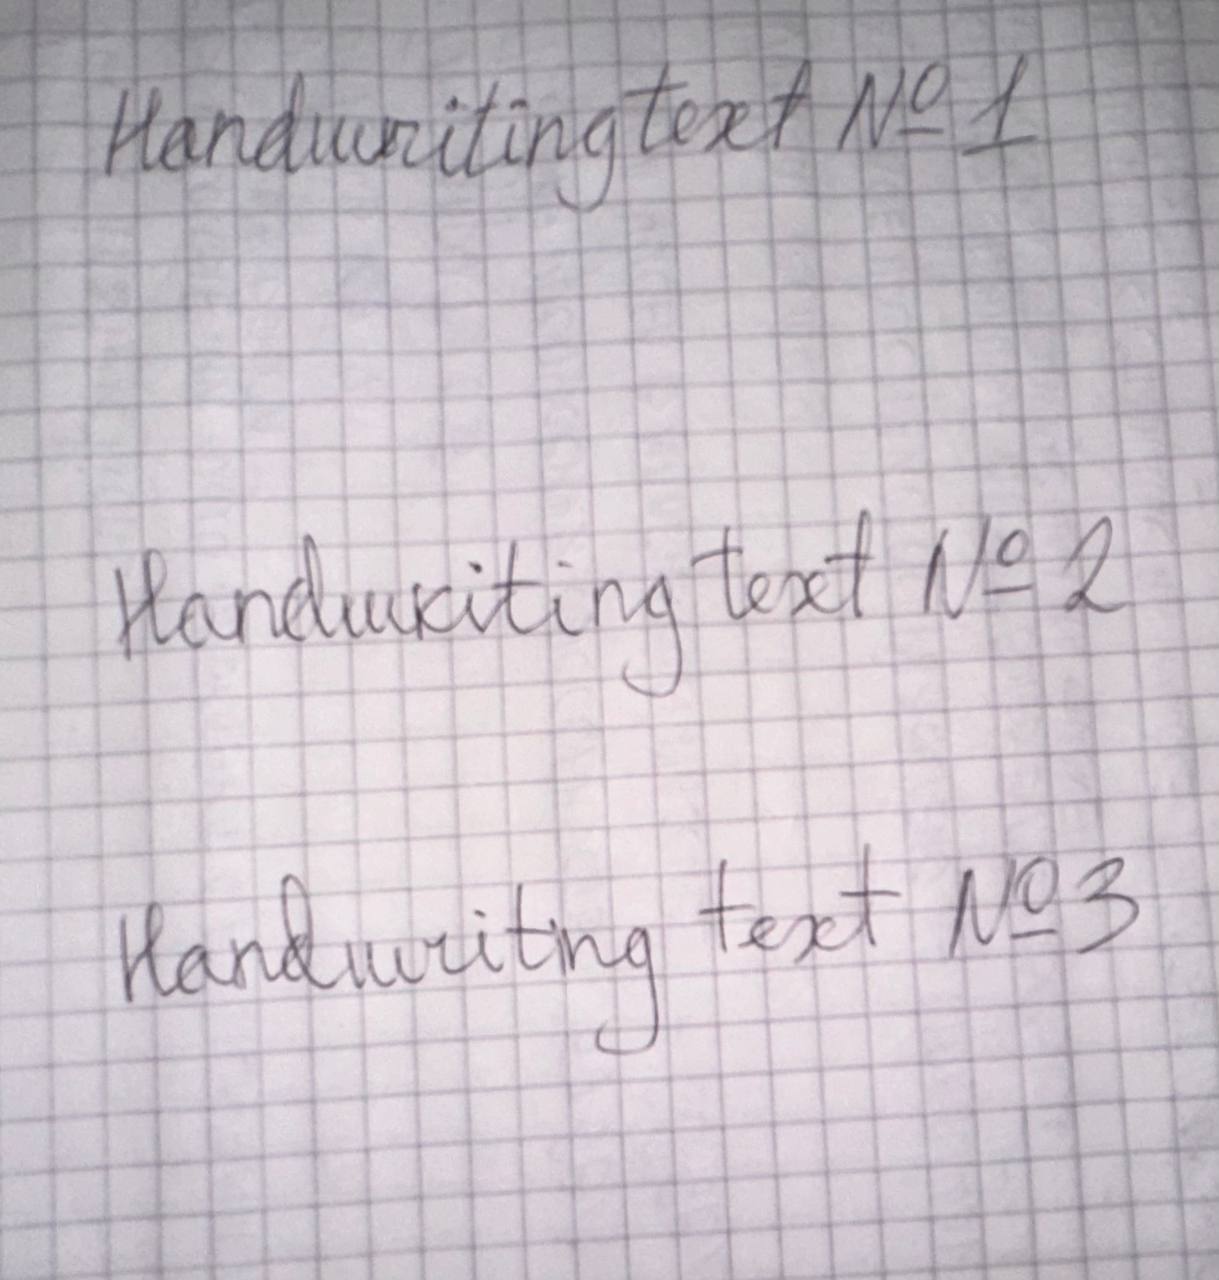 Handwriting text № 1
Handwriting text № 2
Handwriting text № 3